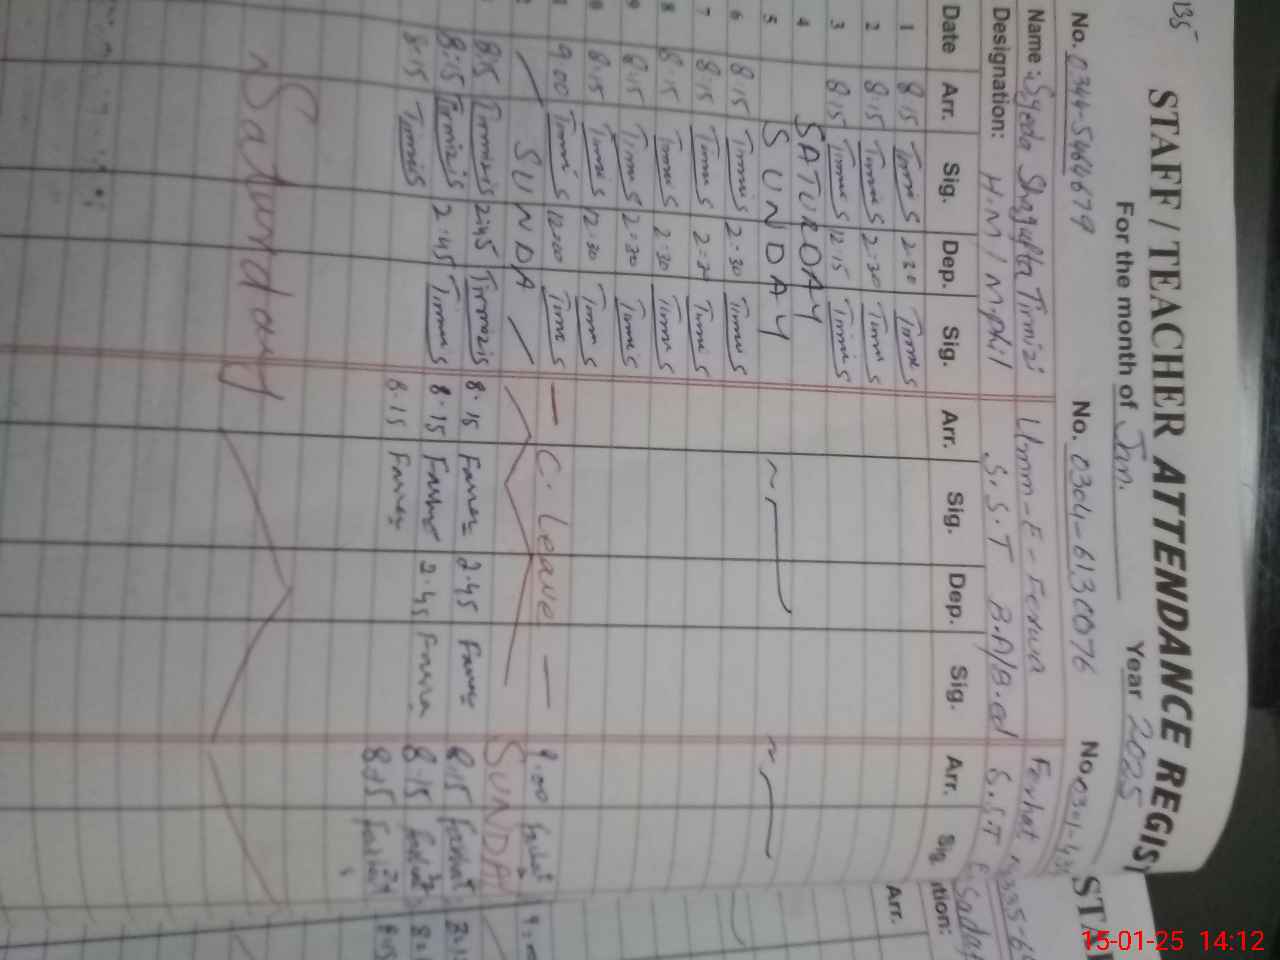 135
STAFF / TEACHER ATTENDANCE REGIS
For the month of Jan. Year 2025
No. 0344-5464679 No. 0304-6130076 No 0301-4
Name: Syeda Shagufta Tirmizi Umm-E-Farwa Farhat
Designation: H.M / M.phil S.S.T B.A/B.ed S.S.T
Date Arr. Sig. Dep. Sig. Arr. Sig. Dep. Sig. Arr. Sig.
1 8.15 Tirmis 2.30 Tirmis
2 8.15 Tirmis 2.30 Tirmis
3 8.15 Tirmis 12.15 Tirmis
4 SATURDAY
5 SUNDAY
6 8.15 Tirmis 2.30 Tirmis
7 8.15 Tirmis 2.30 Tirmis
8 8.15 Tirmis 2.30 Tirmis
9 8.15 Tirmis 2.30 Tirmis
8.15 Tirmis 12.30 Tirmis
9.00 Tirmis 12.00 Tirmis — C. Leave — 9.00
SUNDA SUNDAY
8.15 Tirmizis 2.45 Tirmizis 8.15 Farwa 2.45 Farwa 8.15 Farhat
8.15 Tirmizis 2.45 Tirmis 8.15 Farwa 2.45 Farwa 8.15 Farhat
8.15 Tirmis 8.15 Farwa 8.15 Farhat
Saturday
STA
335-6
Sadaf
ition:
Arr.
15-01-25 14:12